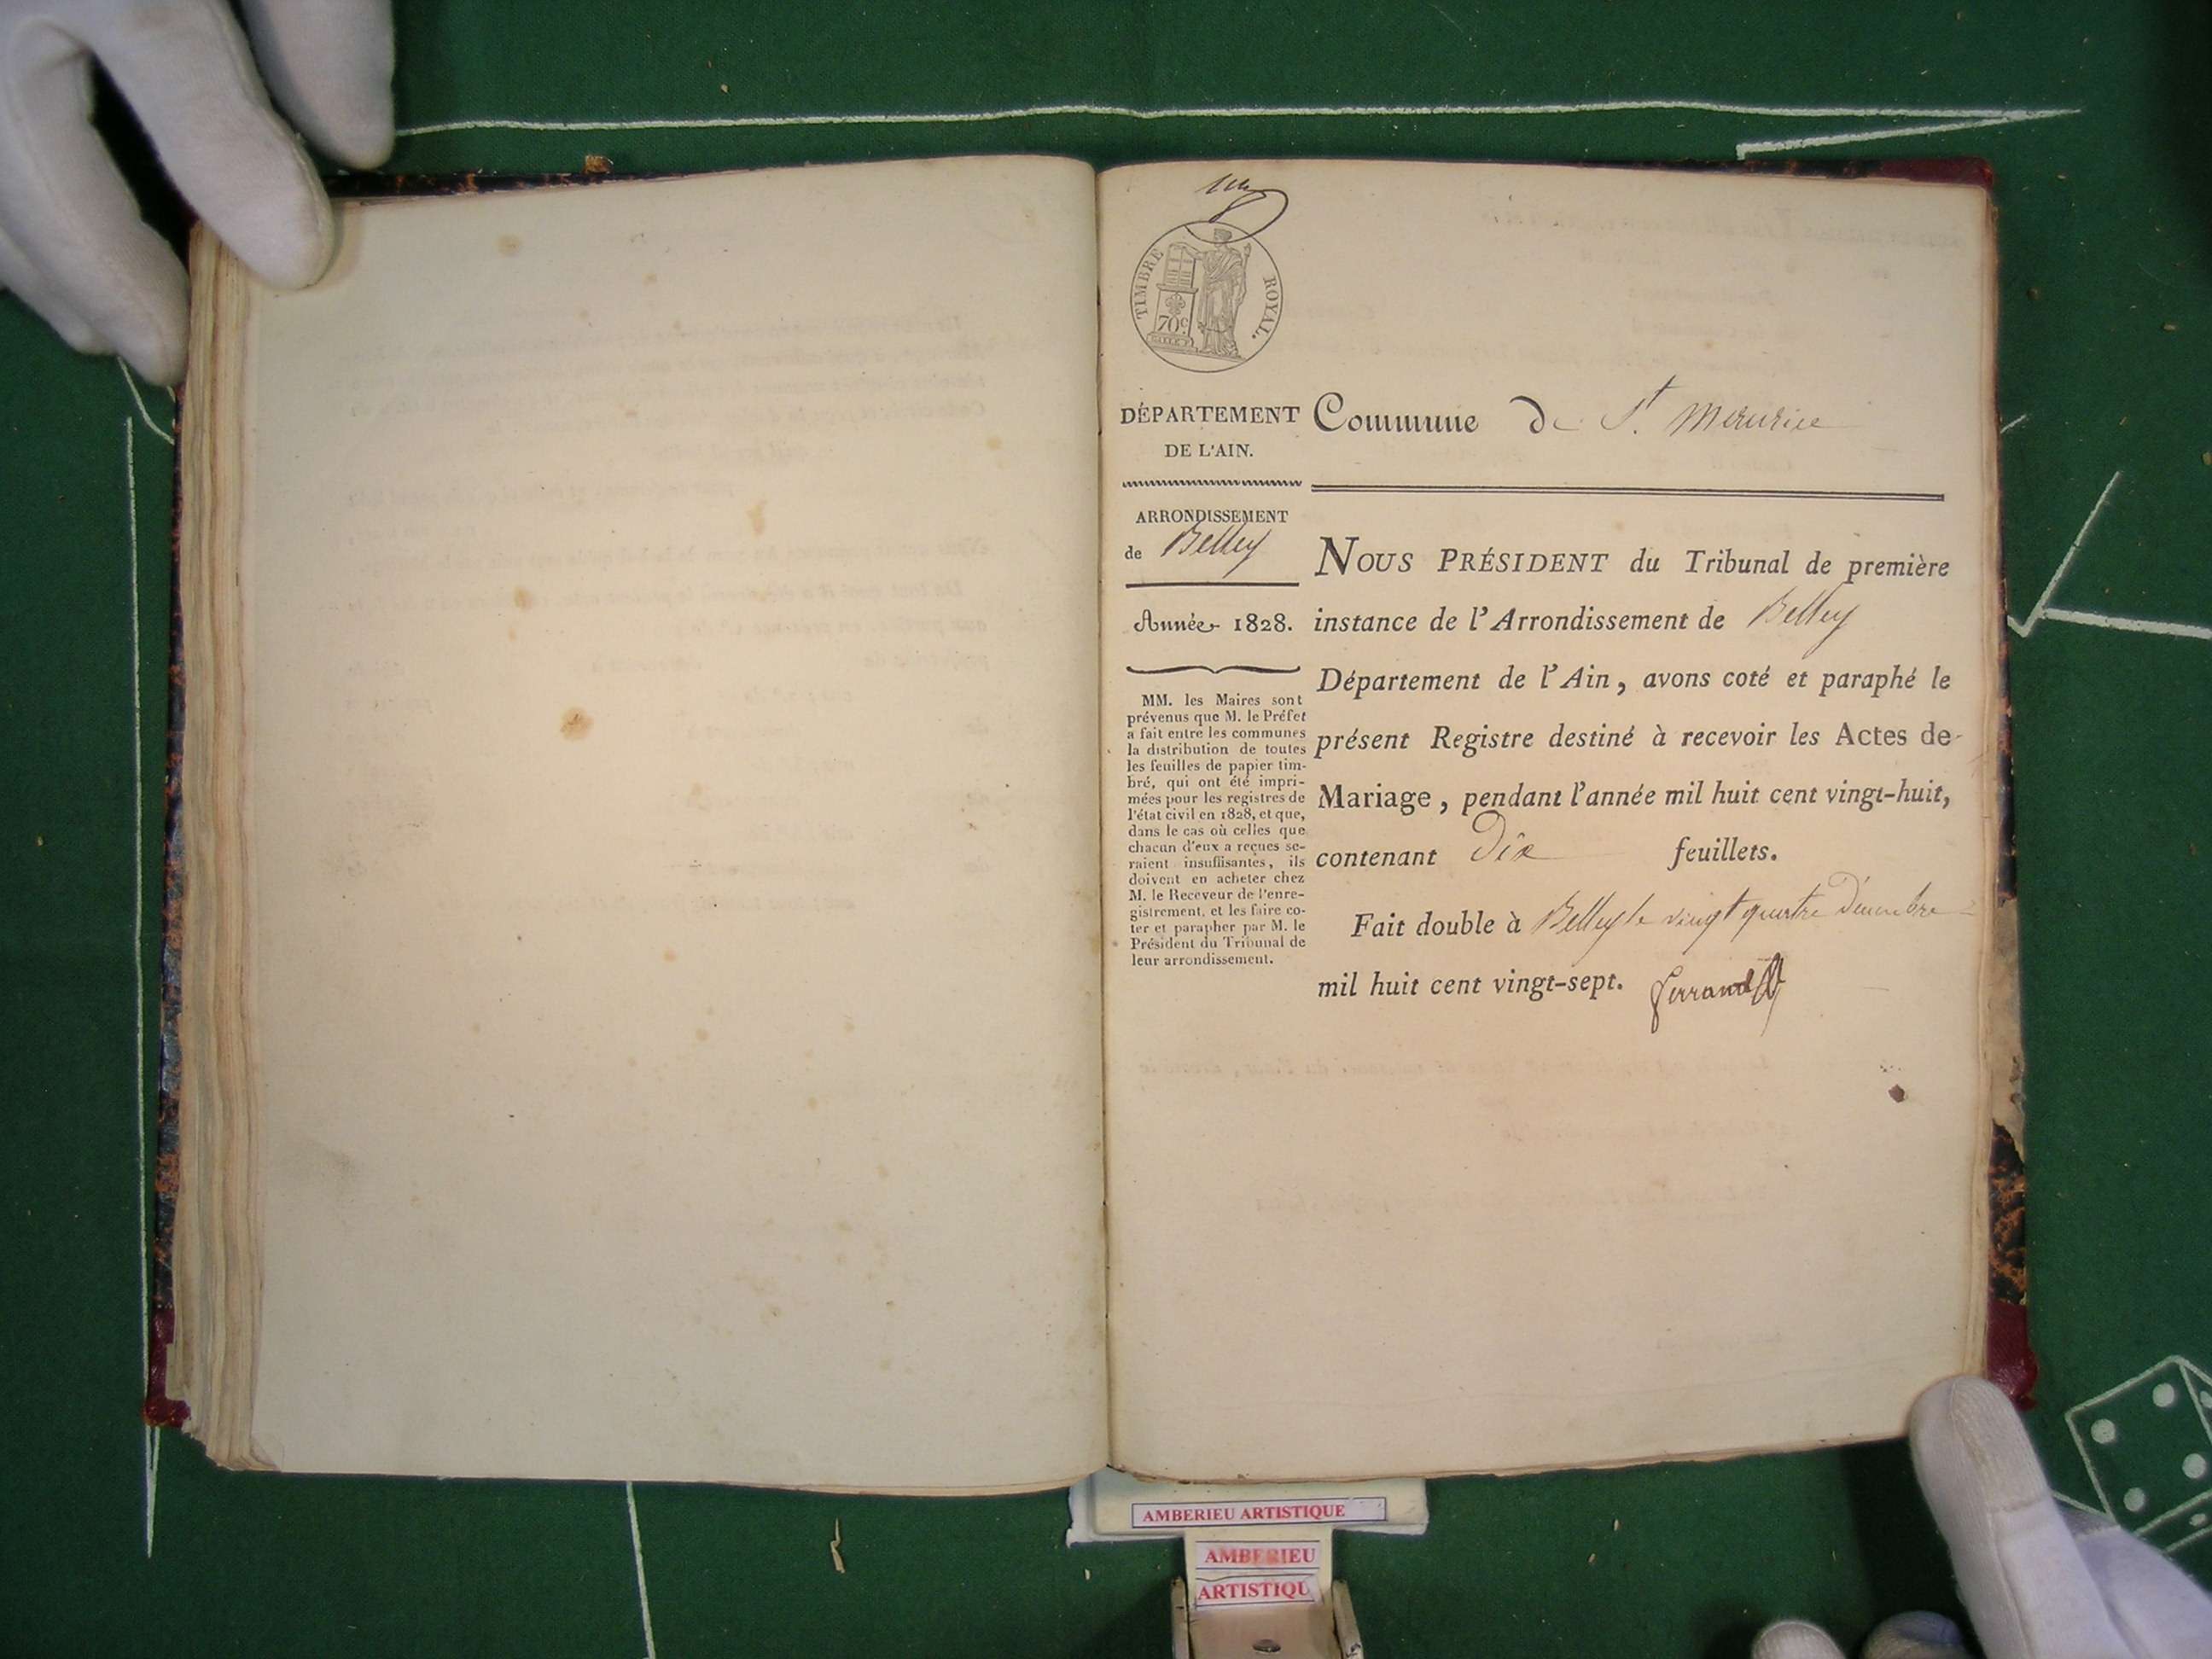 TIMBRE ROYAL.
70c
DÉPARTEMENT
DE L'AIN.
ARRONDISSEMENT
de Belley
Année 1828.
MM. les Maires sont
prévenus que M. le Préfet
a fait entre les communes
la distribution de toutes
les feuilles de papier tim-
bré, qui ont été impri-
mées pour les registres de
l'état civil en 1828, et que,
dans le cas où celles que
chacun d'eux a reçues se-
raient insuffisantes, ils
doivent en acheter chez
M. le Receveur de l'enre-
gistrement, et les faire co-
ter et parapher par M. le
Président du Tribunal de
leur arrondissement.
Commune de St. Maurice
NOUS PRÉSIDENT du Tribunal de première
instance de l'Arrondissement de Belley
Département de l'Ain, avons coté et paraphé le
présent Registre destiné à recevoir les Actes de
Mariage, pendant l'année mil huit cent vingt-huit,
contenant Dix feuillets.
Fait double à Belley le vingt quatre Décembre
mil huit cent vingt-sept. Ferrand
AMBERIEU ARTISTIQUE
AMBERIEU
ARTISTIQU